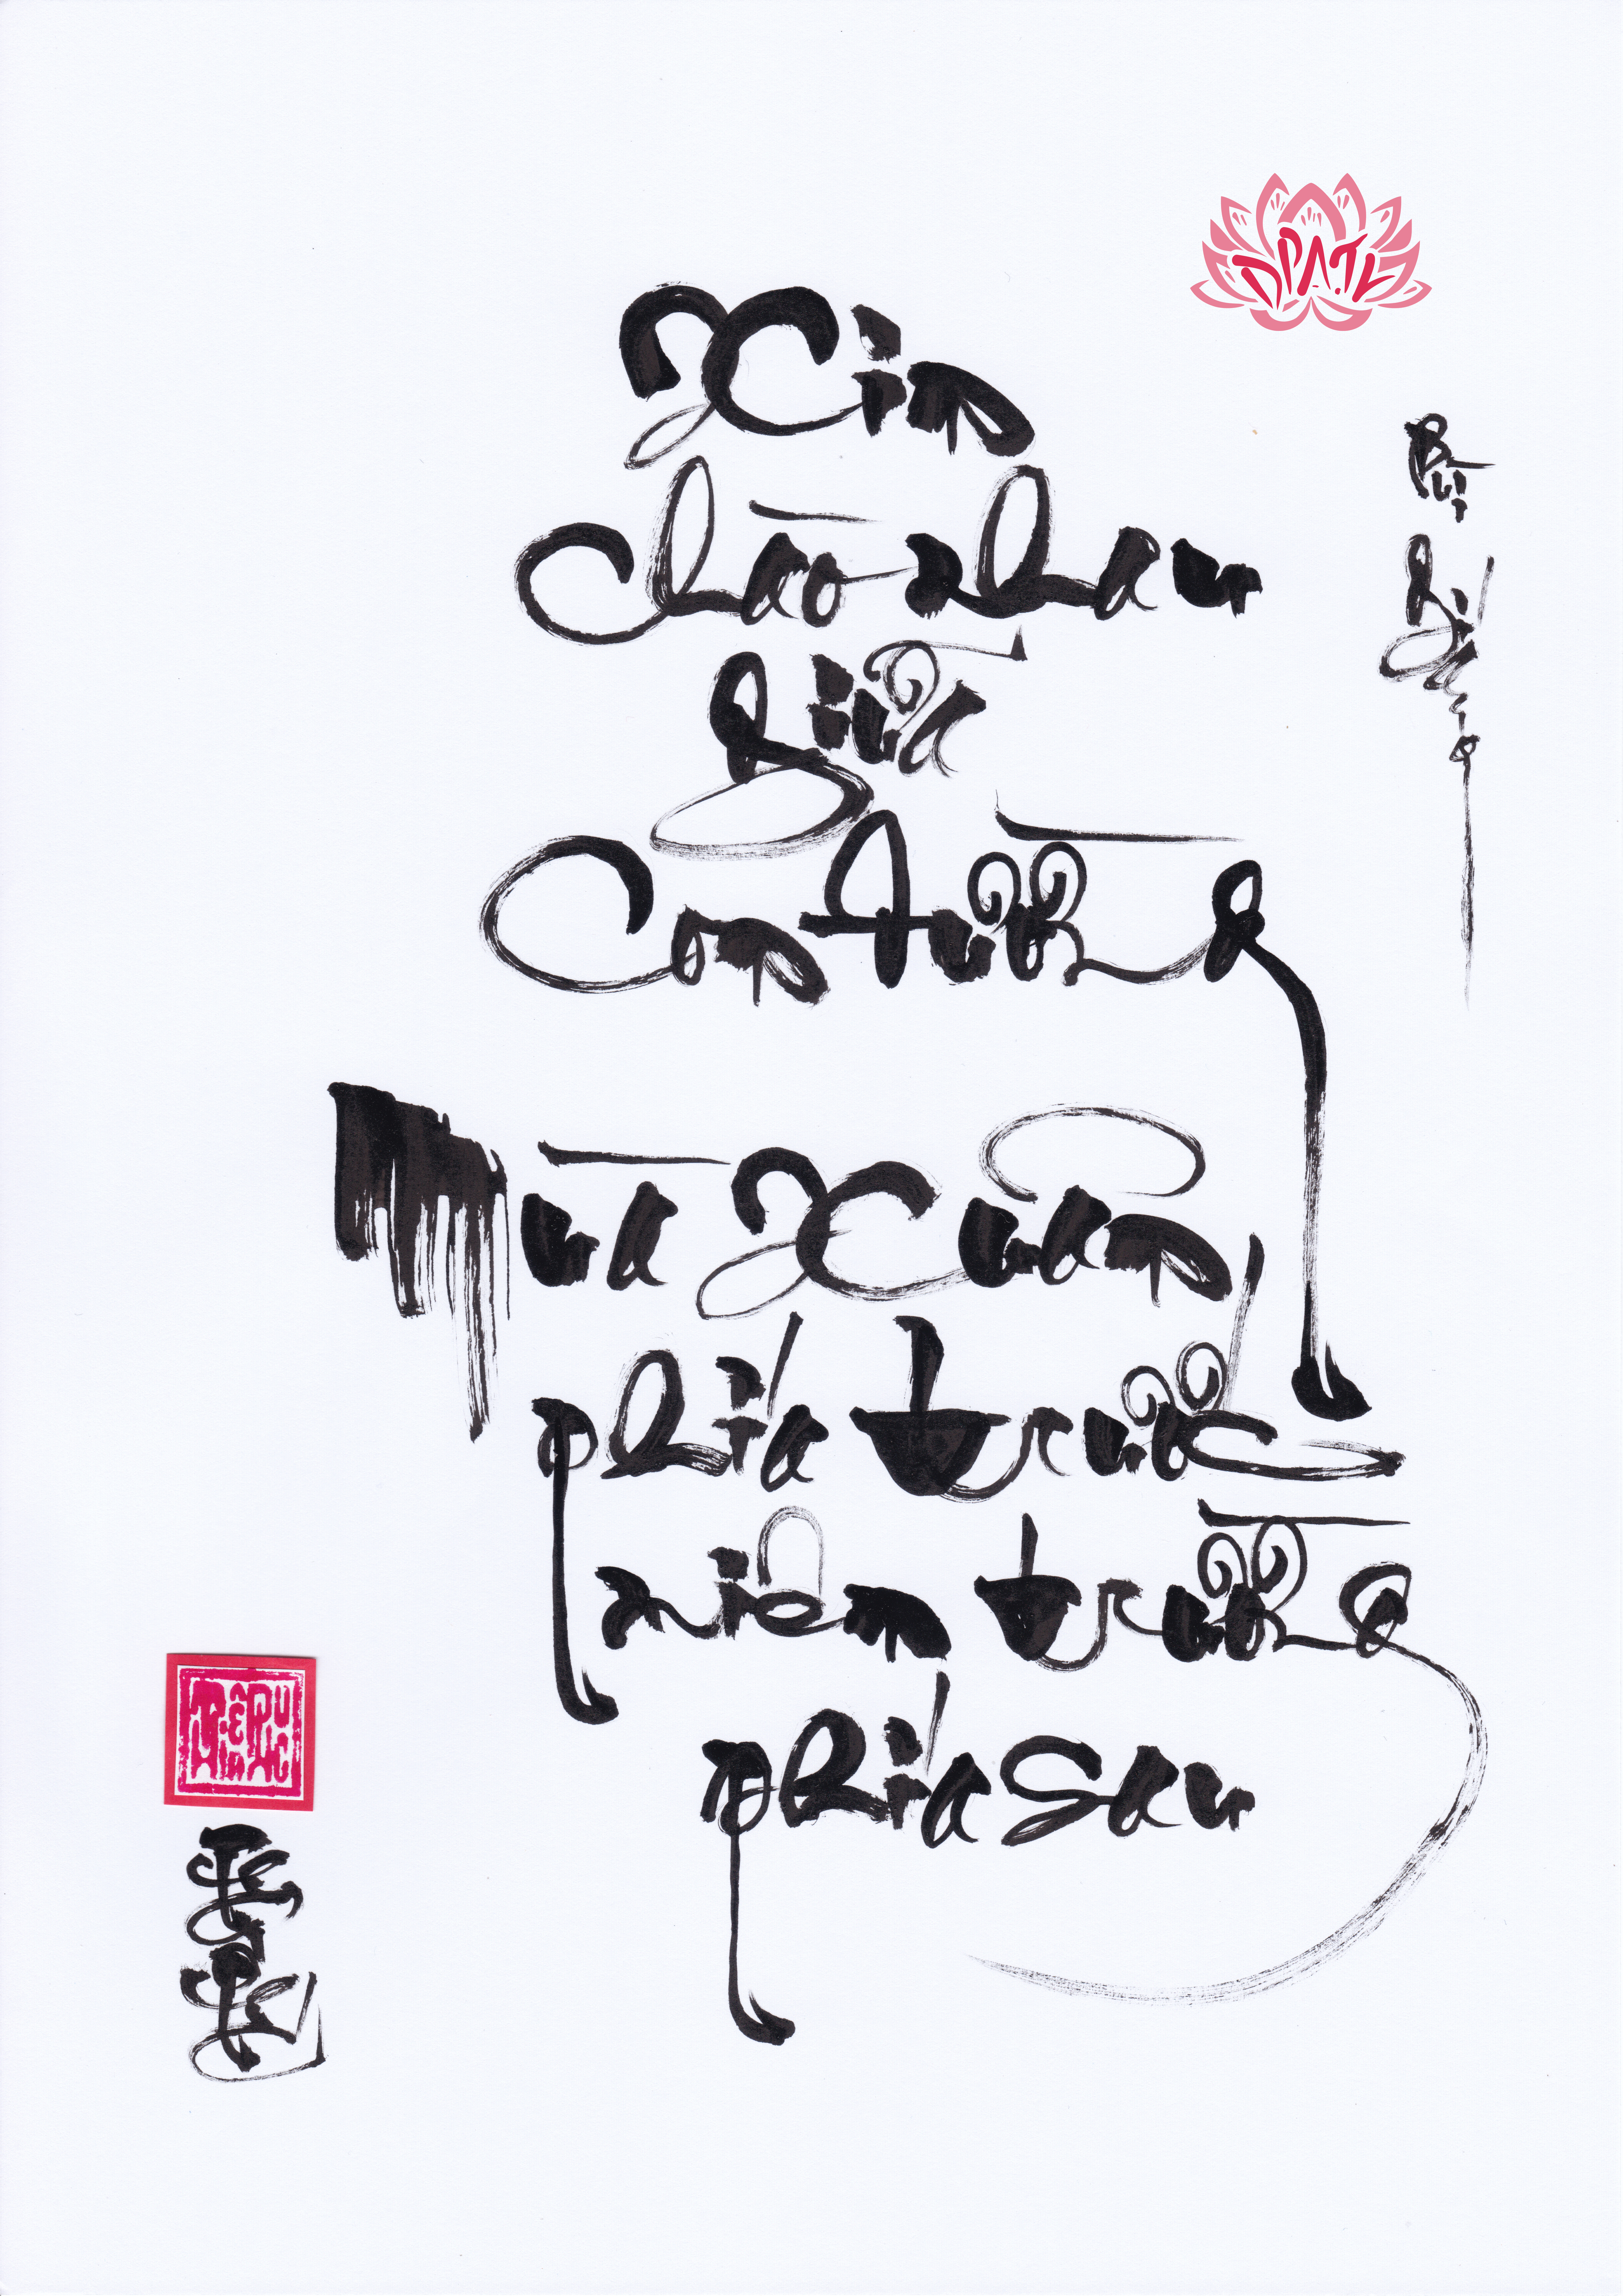 DPATL
Xin
chào nhau
giữa
con đường
Mùa Xuân
phía trước
miên trường
phía sau
Bùi Giáng